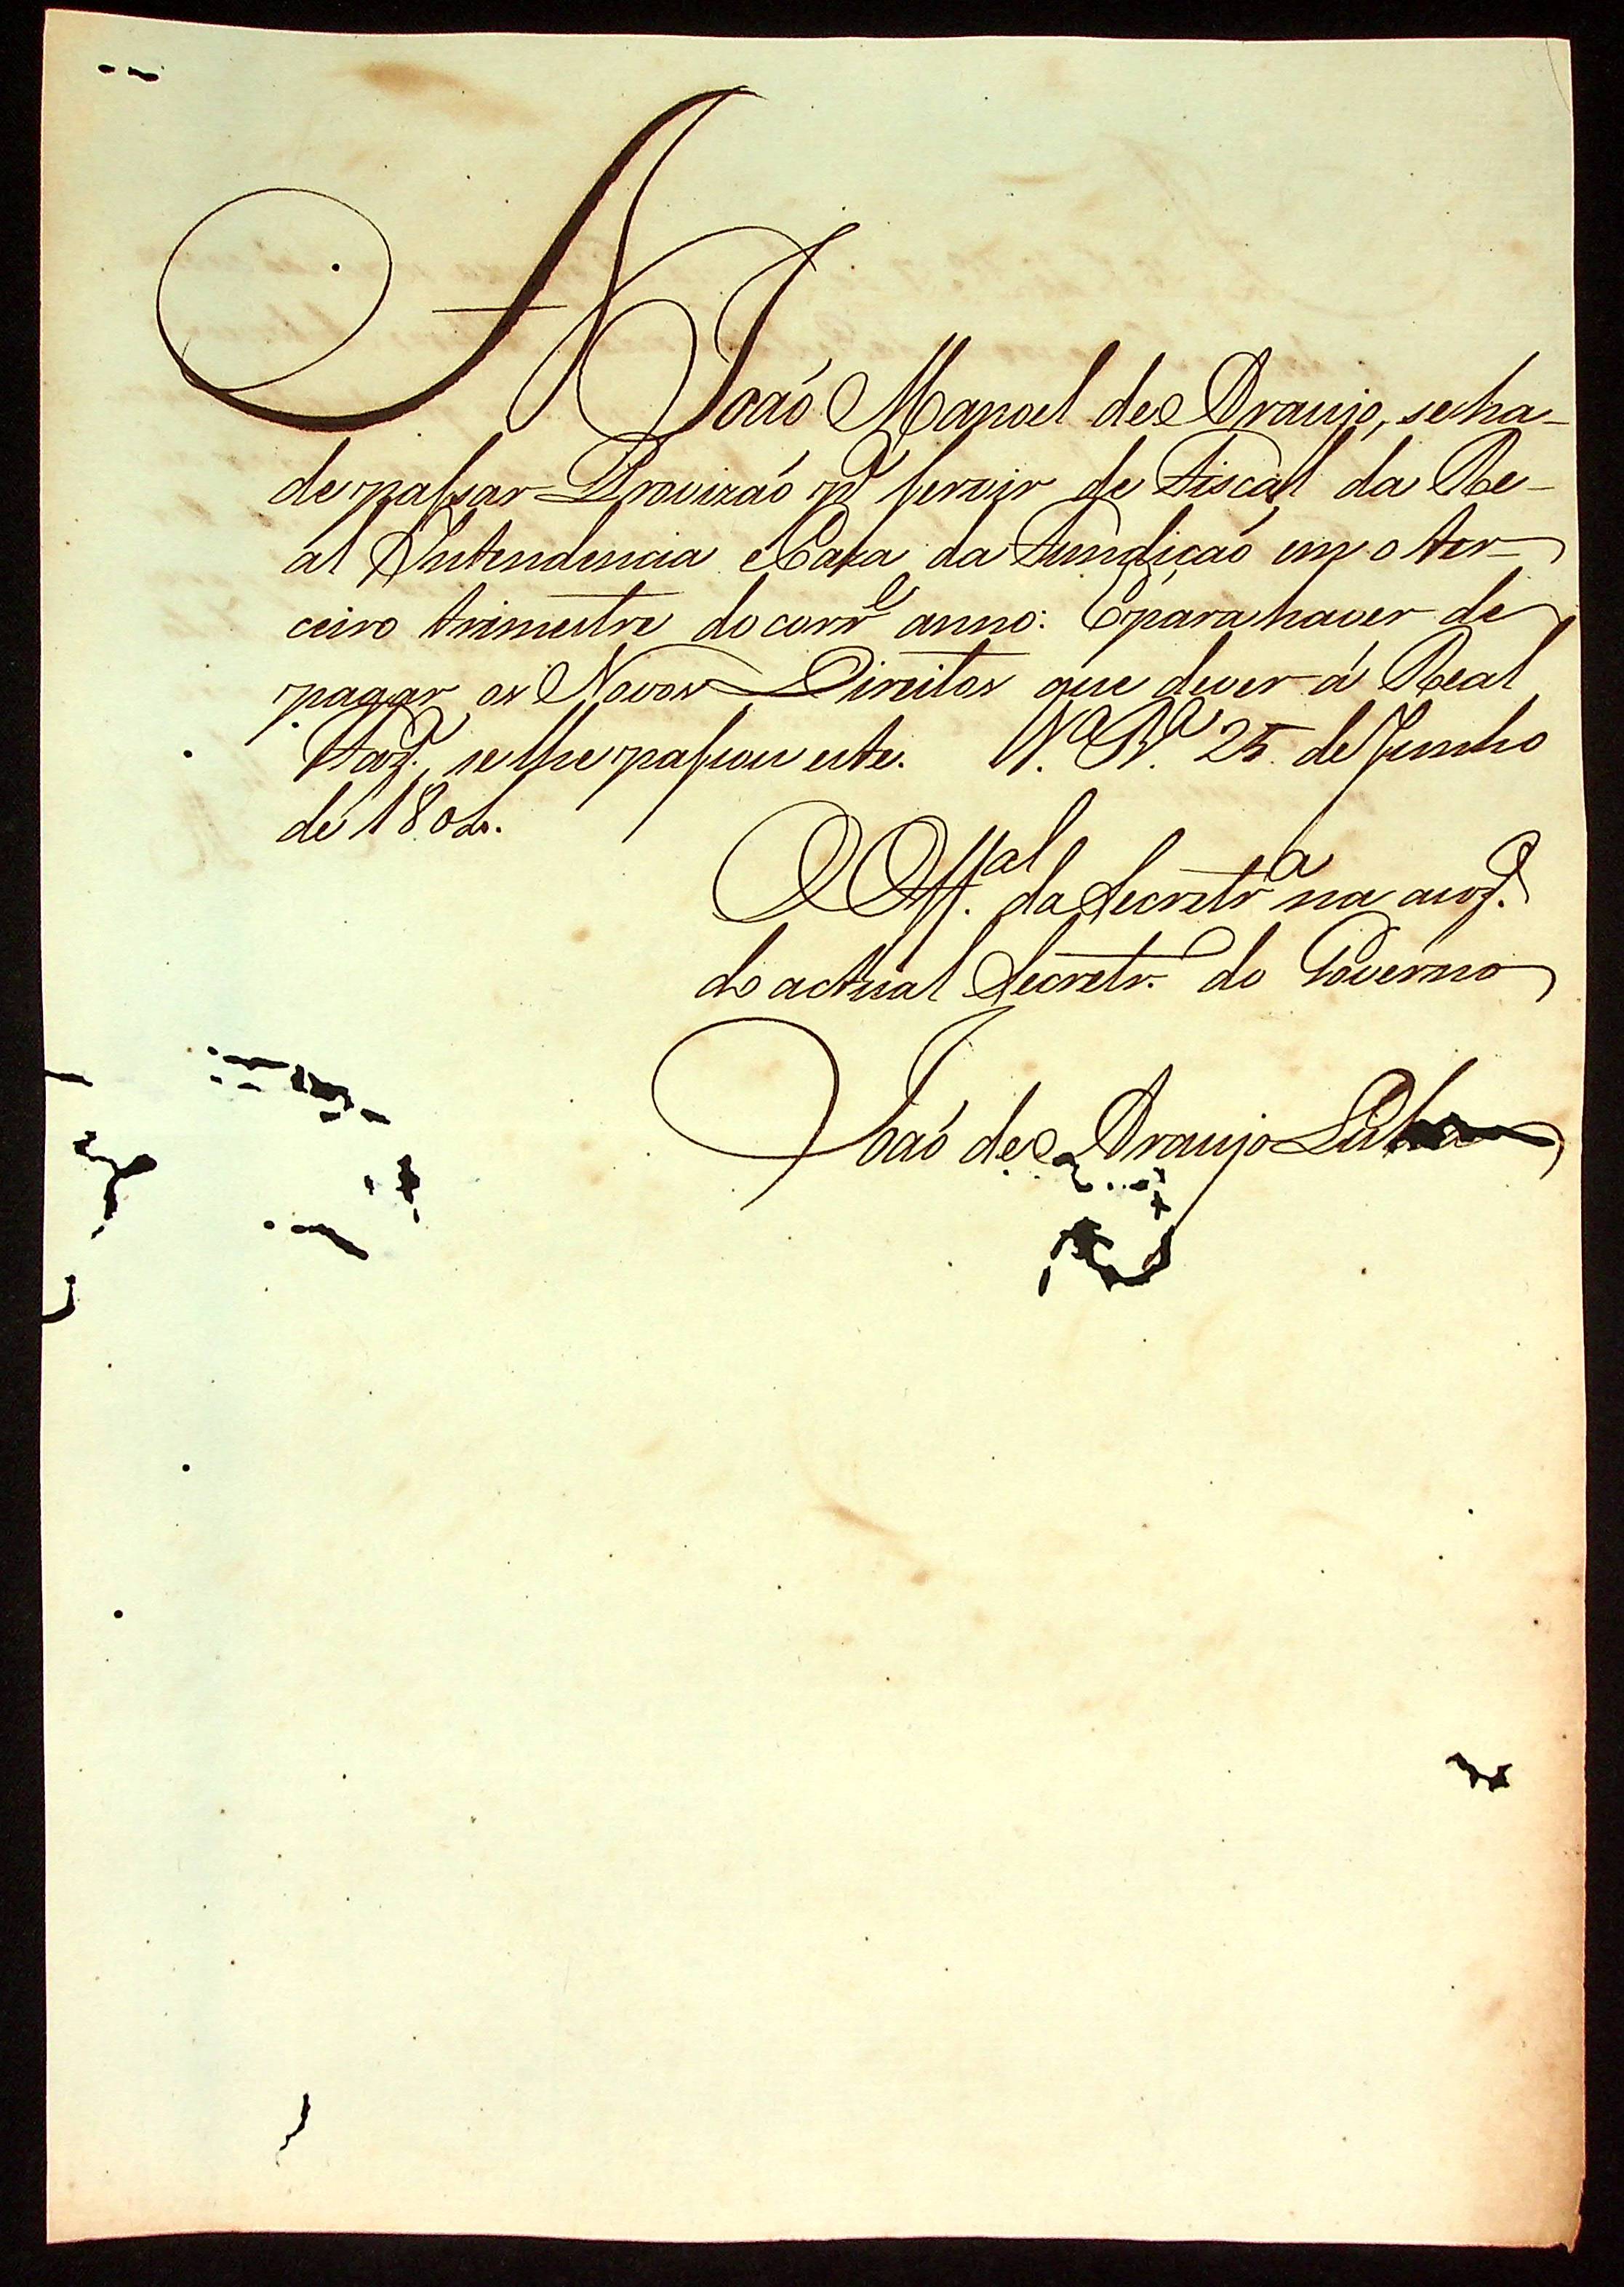 A João Manoel de Araujo, se ha-
de passar Provizaó p.ª servir de Fiscal da Re-
al Intendencia e Caza da Fundiçaó em o ter-
ceiro trimestre do corr.e anno: E para haver de
pagar os Novos Direitos que dever á Real
Faz.ª, se lhe passou este. V.ª B.ª 25 de Junho
de 180
O Off.al da Secretr.a na auz.ª
do actual Secretr.o do Governo
Joaó de Araujo